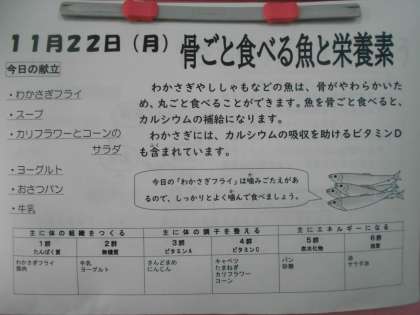 11月22日(月) 骨ごと食べる魚と栄養素
今日の献立
・わかさぎフライ
・スープ
・カリフラワーとコーンの
サラダ
・ヨーグルト
・おさつパン
・牛乳
わかさぎやししゃもなどの魚は、骨がやわらかいた
め、丸ごと食べることができます。魚を骨ごと食べると、
カルシウムの補給になります。
わかさぎには、カルシウムの吸収を助けるビタミンD
も含まれています。
今日の「わかさぎフライ」は噛みごたえがあ
るので、しっかりとよく噛んで食べましょう。
主に体の組織をつくる 主に体の調子を整える 主にエネルギーになる
1群 2群 3群 4群 5群 6群
たんぱく質 無機質 ビタミンA ビタミンC 炭水化物 脂質
わかさぎフライ 牛乳 さんどまめ キャベツ パン 油
鶏肉 ヨーグルト にんじん たまねぎ 砂糖 サラダ油
カリフラワー
コーン